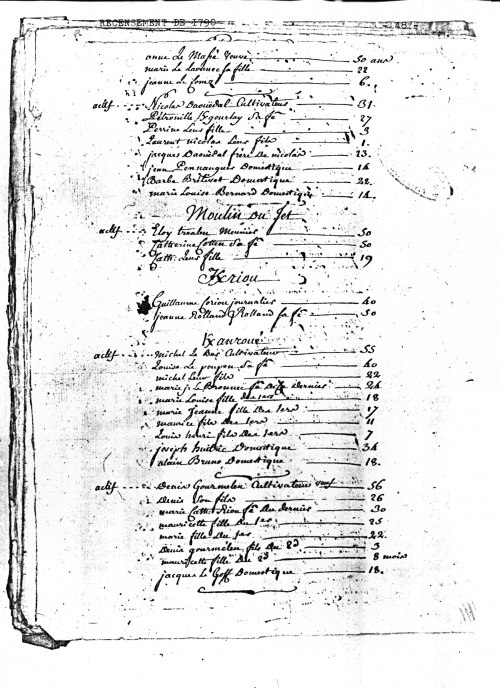 RECENSEMENT DE 1790 48
anne Le Mahé veuve 50 ans
marie Le sa fille 22
jeanne Le 6
actif Nicolas Daouëdal Cultivateur 31
Pétronille Le gourlay Sa fe 27
Perrine Leur fille 3
Laurent nicolas Leur fils 1
jacques Daouëdal frère De nicolas 23
jean Pennanguer Domestique 14
Barbe Domestique 22
marie Louise Bernard Domestique 14
Moulin Du Jet
actif Eloy troalen Meunier 50
Catherine Cotten Sa fe 50
Cath: Leur fille 19
Kriou
Guillaume Coriou journalier 40
jeanne Rolland sa fe 50
Kanroué
actif Michel Le Bas Cultivateur 55
Louise Le poupon Sa fe 40
michel Leur fils 22
marie j. Le fe Du Dernier 24
marie Louise fille des 1ers 18
marie Jeanne fille Des 1ers 17
maurice fils Des 1ers 11
Louis henri fils Des 1ers 7
joseph huitric Domestique 34
alain Bruno Domestique 18
actif Denis Gourmelen Cultivateur veuf 56
Denis Son fils 26
marie Cath. Riou fe Du Dernier 30
mauricette fille Du 1er 25
marie fille Du 1er 22
Denis gourmelen fils Du 2d 3
mauricette fille Du 2d 8 mois
jacques Le Goff Domestique 18